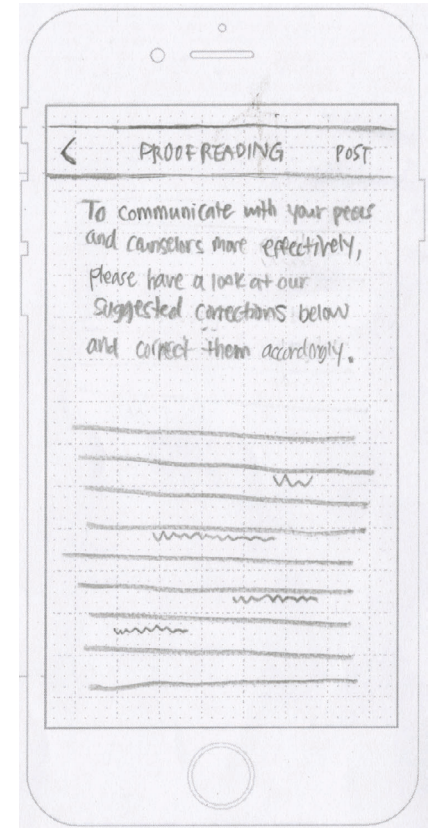 < PROOFREADING POST
To communicate with your peers
and counselors more effectively,
please have a look at our
suggested corrections below
and correct them accordingly.